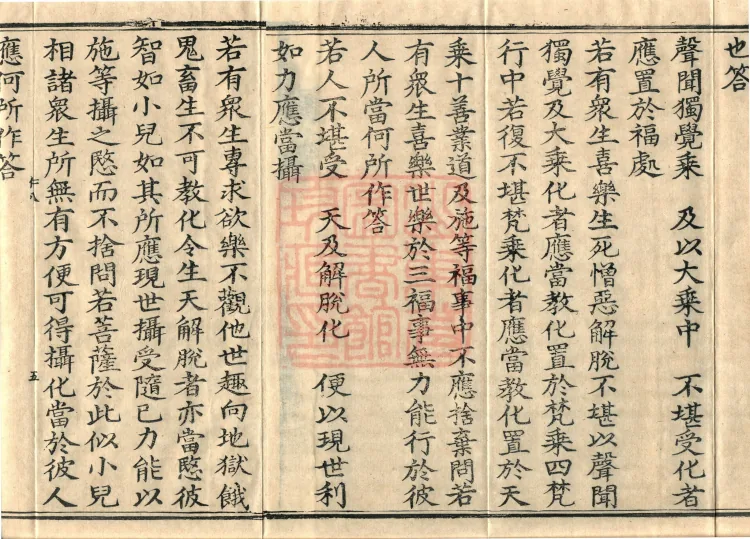 也答
聲聞獨覺乘 及以大乘中 不堪受化者
應置於福處
若有衆生喜樂生死憎惡解脫不堪以聲聞
獨覺及大乘化者應當教化置於梵乘四梵
行中若復不堪梵乘化者應當教化置於天
乘十善業道及施等福事中不應捨棄問若
有衆生喜樂世樂於三福事無力能行於彼
人所當何所作答
若人不堪受 天及解脫化 便以現世利
如力應當攝
若有衆生專求欲樂不觀他世趣向地獄餓
鬼畜生不可教化令生天解脫者亦當愍彼
智如小兒如其所應現世攝受隨己力能以
施等攝之愍而不捨問若菩薩於此似小兒
相諸衆生所無有方便可得攝化當於彼人
應何所作答
五